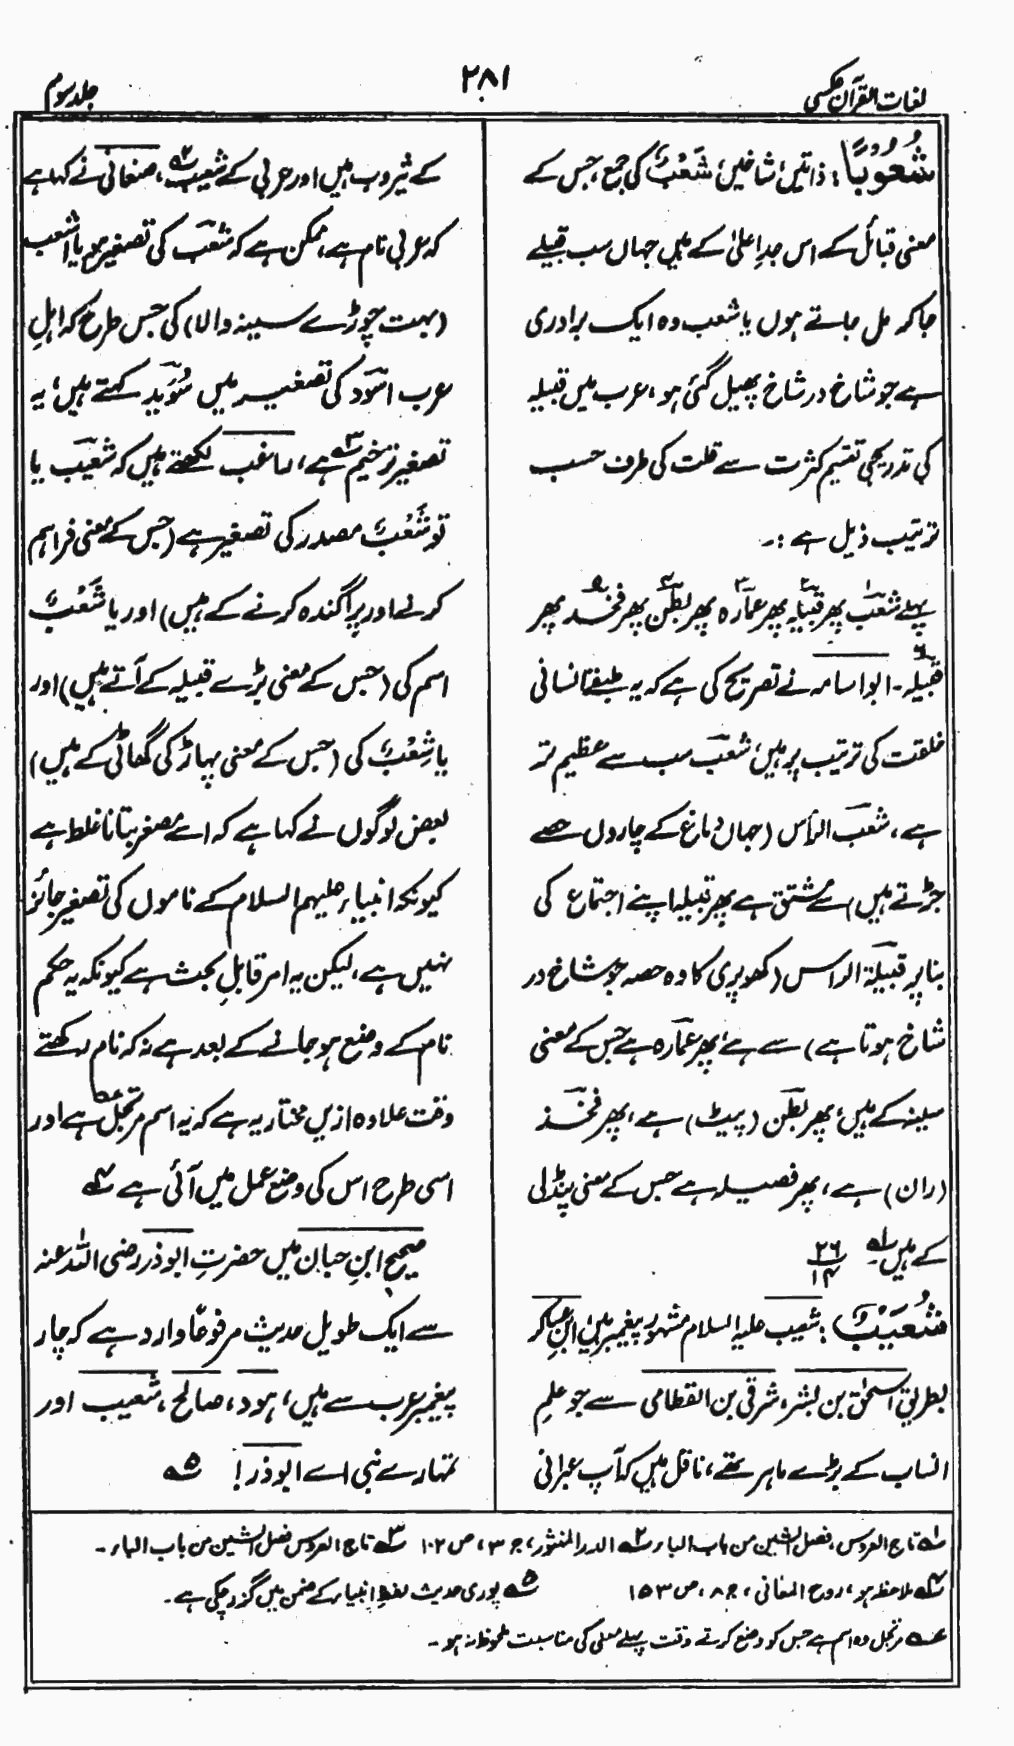 لغات القرآن عکسی
۲۸۱
جلد سوم
شُعُوْبًا: ذاتیں، شاخیں، شَعْبٌ کی جمع، جس کے
معنی قبائل کے اس جدِ اعلیٰ کے ہیں جہاں سب قبیلے
جاکر مل جاتے ہوں یا شعب وہ ایک برادری
ہے جو شاخ در شاخ پھیل گئی ہو، عرب میں قبیلہ
کی تدریجی تقسیم کثرت سے قلت کی طرف حسب
ترتیب ذیل ہے :۔
پہلے شَعب۱ پھر قبیلہ۲ پھر عمارہ۳ پھر بطن۴ پھر فخذ۵ پھر
فصیلہ۶۔ ابو اسامہ نے تصریح کی ہے کہ یہ طبقات انسانی
خلقت کی ترتیب پر ہیں، شعب سب سے عظیم تر
ہے، شعب الرأس (جہاں دماغ کے چاروں حصے
جڑتے ہیں) سے مشتق ہے پھر قبیلہ اپنے اجتماع کی
بنا پر قبیلۃ الراس (کھوپری کا وہ حصہ جو شاخ در
شاخ ہوتا ہے) سے ہے، پھر عمارہ ہے جس کے معنی
سینہ کے ہیں، پھر بطن (پیٹ) ہے، پھر فخذ
(ران) ہے، پھر فصیلہ ہے جس کے معنی پنڈلی
کے ہیں۔ ۱؎ ۲۶/۱۴
شُعَیْبٌ: شعیب علیہ السلام مشہور پیغمبر ہیں، ابنِ عساکر
بطریق اسحٰق بن بشر، شرقی بن القطامی سے جو علمِ
انساب کے بڑے ماہر تھے، ناقل ہیں کہ آپ عبرانی
کے یثروب ہیں اور عربی کے شعیب۲؎، صنعانی نے کہا ہے
کہ عربی نام ہے، ممکن ہے کہ شَعب کی تصغیر ہو یا اشعب
(بہت چوڑے سینہ والا) کی جس طرح کہ اہلِ
عرب اسود کی تصغیر میں سُوَید کہتے ہیں، یہ
تصغیر ترخیم ہے۳؎، راغب لکھتے ہیں کہ شعیب یا
تو شَعْبٌ مصدر کی تصغیر ہے (جس کے معنی فراہم
کرنے اور پراگندہ کرنے کے ہیں) اور یا شَعْبٌ
اسم کی (جس کے معنی بڑے قبیلہ کے آتے ہیں) اور
یا شِعْبٌ کی (جس کے معنی پہاڑ کی گھاٹی کے ہیں)
بعض لوگوں نے کہا ہے کہ اسے مصغر بتانا غلط ہے
کیونکہ انبیاء علیہم السلام کے ناموں کی تصغیر جائز
نہیں ہے، لیکن یہ امر قابلِ بحث ہے کیونکہ یہ حکم
نام کے وضع ہو جانے کے بعد ہے نہ کہ نام رکھتے
وقت علاوہ ازیں مختار یہ ہے کہ یہ اسم مرتجل عہ ہے اور
اسی طرح اس کی وضع عمل میں آئی ہے ۴؎
صحیح ابنِ حبان میں حضرتِ ابوذر رضی اللہ عنہ
سے ایک طویل حدیث مرفوعًا وارد ہے کہ چار
پیغمبر عرب سے ہیں، ہود، صالح، شعیب اور
تمہارے نبی اے ابوذر! ۵؎
۱؎ تاج العروس، فصل الشین من باب الباء ۲؎ الدر المنثور، ج ۳، ص ۱۰۲ ۳؎ تاج العروس فصل الشین من باب الباء۔
۴؎ ملاحظہ ہو، روح المعانی، ج ۸، ص ۱۵۳ ۵؎ پوری حدیث لفظِ انبیاء کے ضمن میں گزر چکی ہے۔
عہ مرتجل وہ اسم ہے جس کو وضع کرتے وقت پہلے معنی کی مناسبت ملحوظ نہ ہو۔